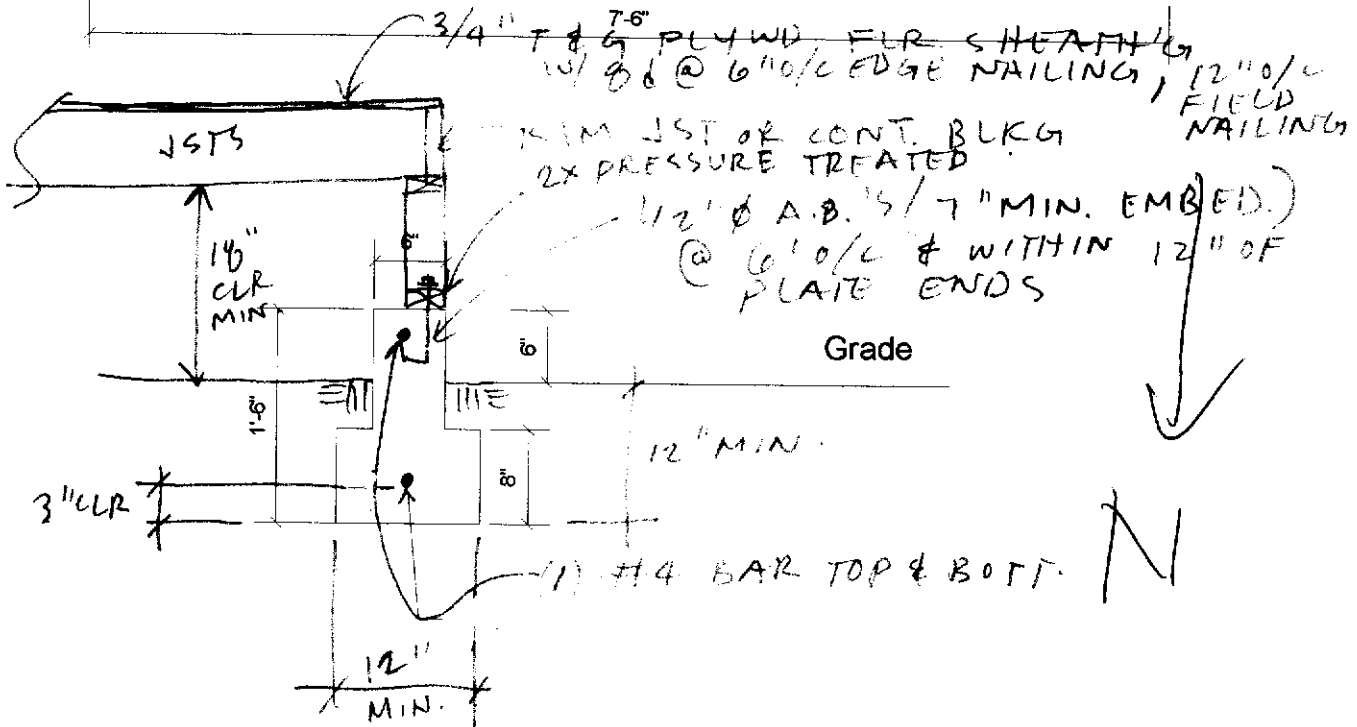 7'-6"
3/4" T & G PLYWD FLR SHEATH'G
W/ 8d @ 6" O/C EDGE NAILING, 12" O/C
FIELD
NAILING
JSTS
RIM JST OR CONT. BLKG
2X PRESSURE TREATED
1/2" Ø A.B.'S/ 7" MIN. EMBED.)
@ 6' O/C & WITHIN 12" OF
PLATE ENDS
18"
CLR
MIN.
6"
6"
Grade
1'-6"
12" MIN.
8"
3" CLR
(1) #4 BAR TOP & BOTT.
N
12"
MIN.